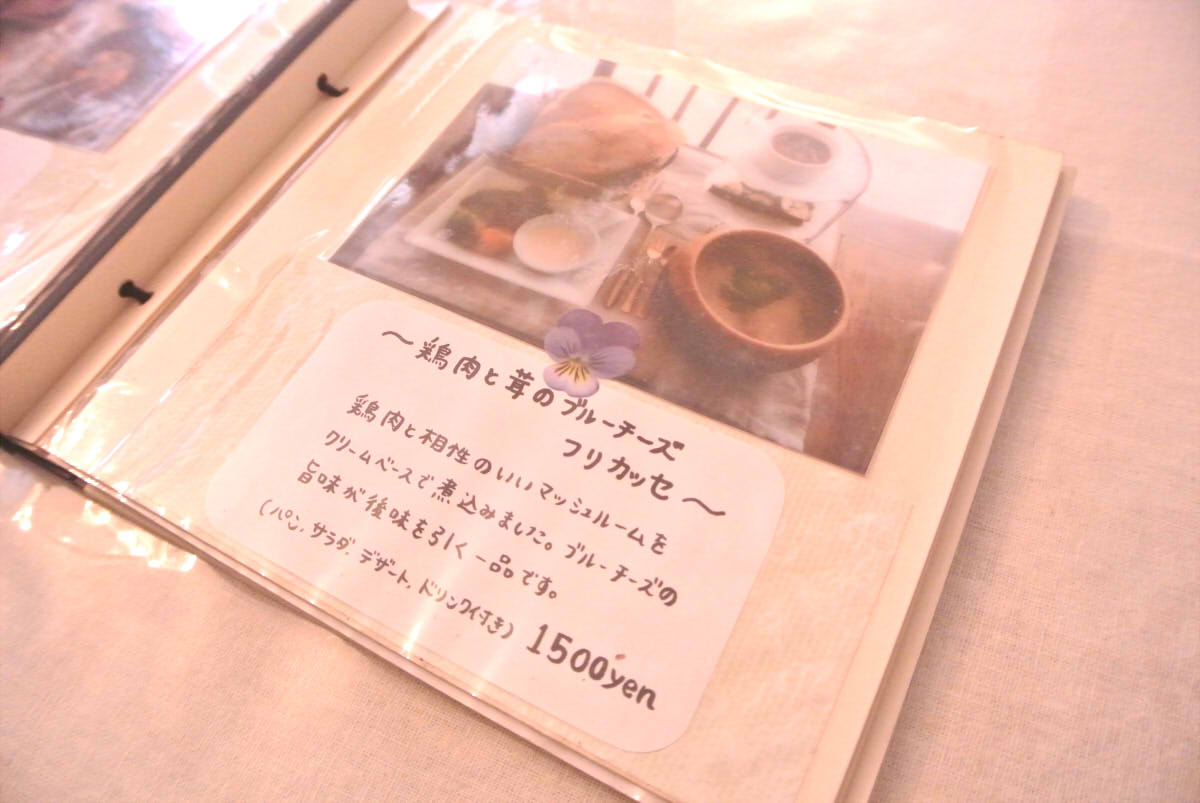 ～鶏肉と茸のブルーチーズ
フリカッセ～
鶏肉と相性のいいマッシュルームを
クリームベースで煮込みました。ブルーチーズの
旨味が後味を引く一品です。
(パン、サラダ、デザート、ドリンク付き)
1500yen